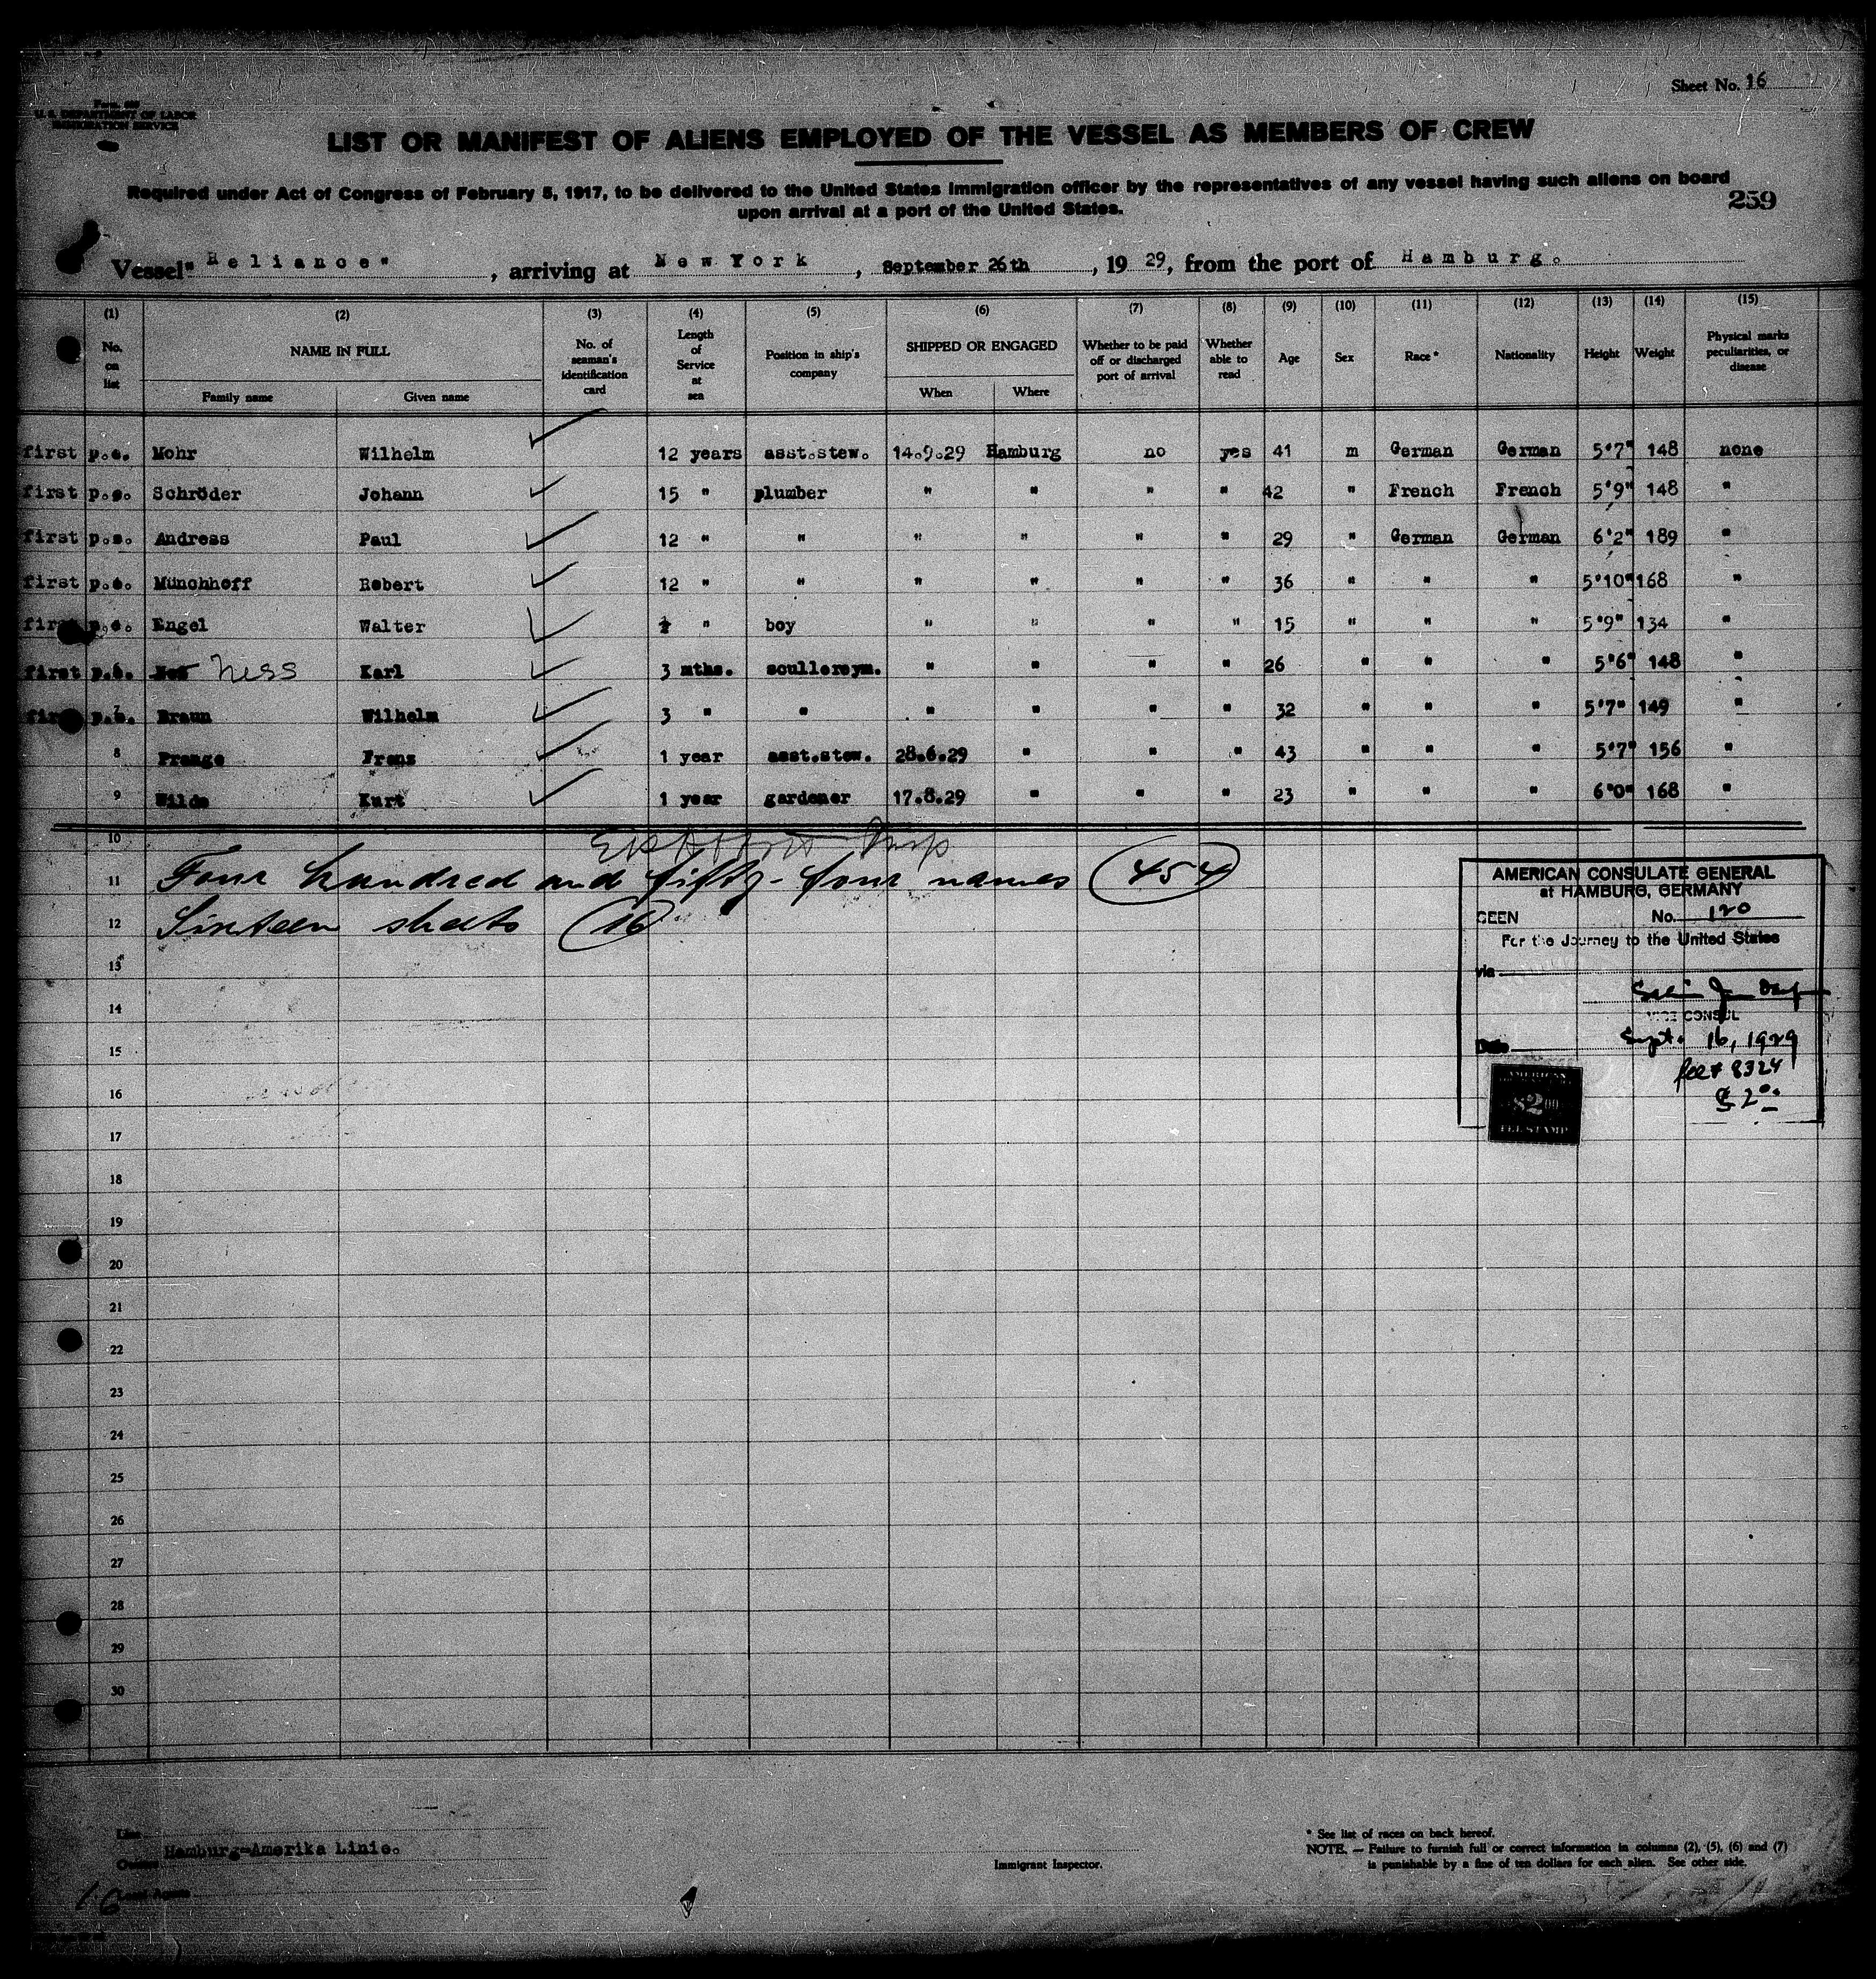 Sheet No. 16
U. S. DEPARTMENT OF LABOR
IMMIGRATION SERVICE
LIST OR MANIFEST OF ALIENS EMPLOYED OF THE VESSEL AS MEMBERS OF CREW
Required under Act of Congress of February 5, 1917, to be delivered to the United States Immigration officer by the representatives of any vessel having such aliens on board
upon arrival at a port of the United States.
259
Vessel "Reliance", arriving at New York, September 26th, 1929, from the port of Hamburg.
(1) (2) (3) (4) (5) (6) (7) (8) (9) (10) (11) (12) (13) (14) (15)
No. on list NAME IN FULL No. of seaman's identification card Length of Service at sea Position in ship's company SHIPPED OR ENGAGED Whether to be paid off or discharged port of arrival Whether able to read Age Sex Race* Nationality Height Weight Physical marks peculiarities, or disease
Family name Given name When Where
first p.s. Mohr Wilhelm 12 years asst.stew. 14.9.29 Hamburg no yes 41 m German German 5'7" 148 none
first p.s. Schröder Johann 15 " plumber " " " " 42 " French French 5'9" 148 "
first p.s. Andress Paul 12 " " " " " " 29 " German German 6'2" 189 "
first p.s. Münchhoff Robert 12 " " " " " " 36 " " " 5'10" 168 "
first p.s. Engel Walter " boy " " " " 15 " " " 5'9" 134 "
first p.s. Ness Karl 3 mths. scullerym. " " " " 26 " " " 5'6" 148 "
first 7 p.s. Braun Wilhelm 3 " " " " " " 32 " " " 5'7" 149 "
8 Prange Frans 1 year asst.stew. 28.6.29 " " " 43 " " " 5'7" 156 "
9 Wilde Kurt 1 year gardener 17.8.29 " " " 23 " " " 6'0" 168 "
10
11 Four hundred and fifty-four names 454
12 Sixteen sheets 16
13
14
15
16
17
18
19
20
21
22
23
24
25
26
27
28
29
30
AMERICAN CONSULATE GENERAL
at HAMBURG, GERMANY
SEEN No. 120
For the Journey to the United States
via
VICE CONSUL
Date Sept. 16, 1929
fee # 8324
$ 2.00
AMERICAN
$2.00
FEE STAMP
Line
Owners Hamburg-Amerika Linie.
Local Agents
16
Immigrant Inspector.
* See list of races on back hereof.
NOTE. — Failure to furnish full or correct information in columns (2), (5), (6) and (7)
is punishable by a fine of ten dollars for each alien. See other side.